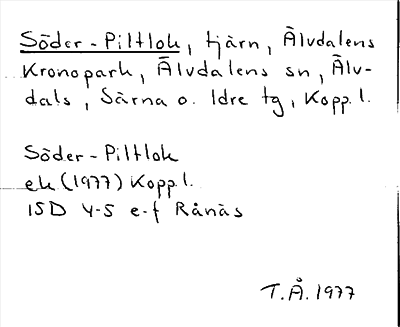 Söder-Piltlok, tjärn, Älvdalens
Kronopark, Älvdalens sn, Älv-
dals, Särna o. Idre tg, Kopp l.
Söder-Piltlok
ek (1977) Kopp l.
15D 4-5 e-f Rånäs
T.Å. 1977